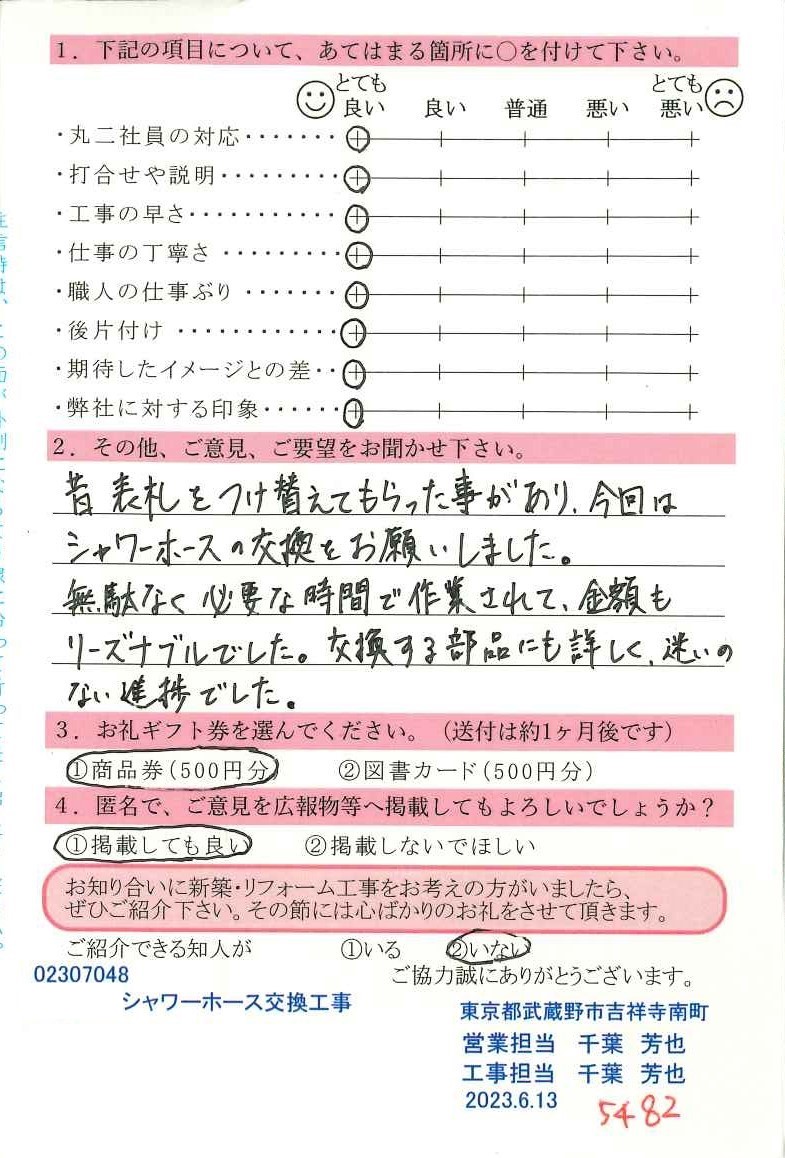 1．下記の項目について、あてはまる箇所に○を付けて下さい。
とても良い 良い 普通 悪い とても悪い
・丸二社員の対応・・・・・・・
・打合せや説明・・・・・・・・・
・工事の早さ・・・・・・・・・・・
・仕事の丁寧さ ・・・・・・・・・
・職人の仕事ぶり ・・・・・・・
・後片付け ・・・・・・・・・・・・
・期待したイメージとの差・・
・弊社に対する印象・・・・・・
2．その他、ご意見、ご要望をお聞かせ下さい。
昔 表札をつけ替えてもらった事があり、今回は
シャワーホースの交換をお願いしました。
無駄なく必要な時間で作業されて、金額も
リーズナブルでした。交換する部品にも詳しく、迷いの
ない進捗でした。
3．お礼ギフト券を選んでください。（送付は約1ヶ月後です）
①商品券（500円分） ②図書カード（500円分）
4．匿名で、ご意見を広報物等へ掲載してもよろしいでしょうか？
①掲載しても良い ②掲載しないでほしい
お知り合いに新築・リフォーム工事をお考えの方がいましたら、
ぜひご紹介下さい。その節には心ばかりのお礼をさせて頂きます。
ご紹介できる知人が ①いる ②いない
ご協力誠にありがとうございます。
02307048
シャワーホース交換工事
東京都武蔵野市吉祥寺南町
営業担当 千葉 芳也
工事担当 千葉 芳也
2023.6.13
5482